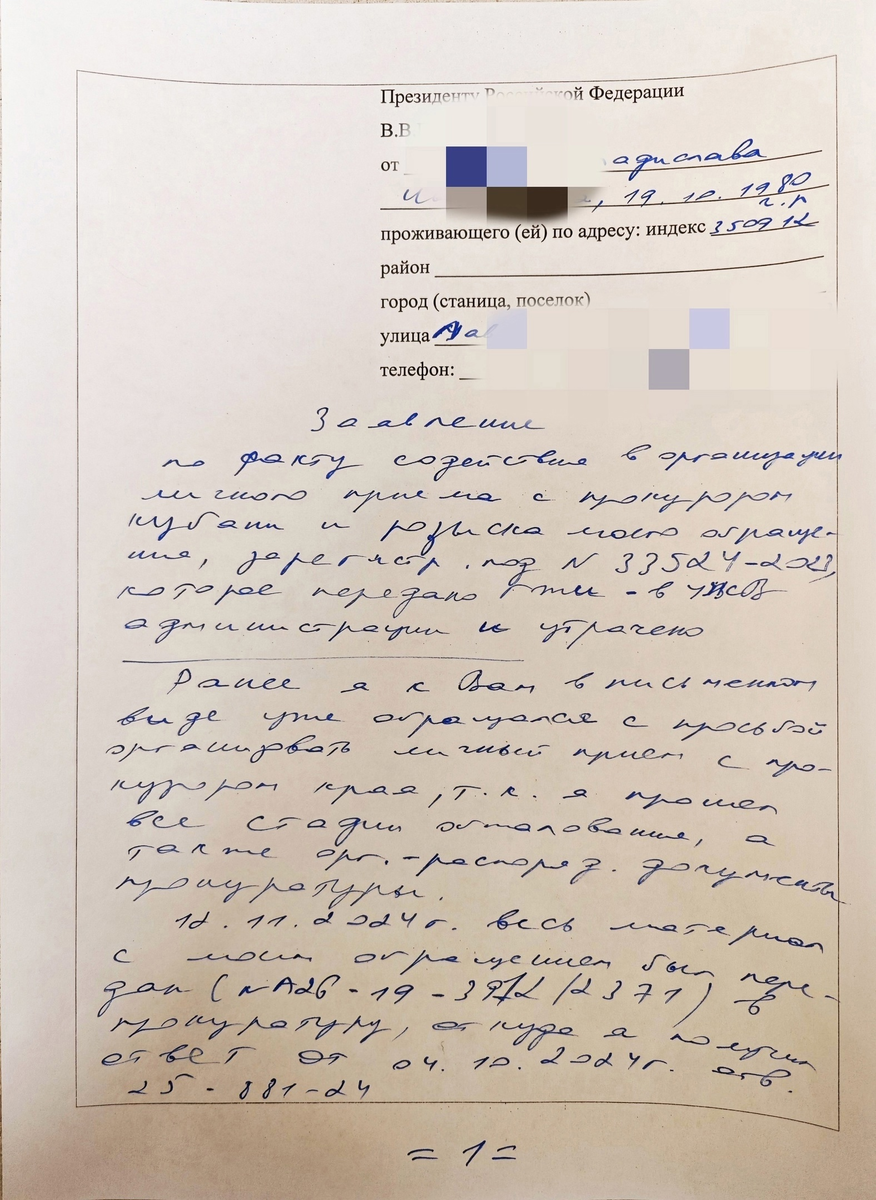 Президенту Российской Федерации
В.В
от адислава
19.10.1980
г.р
проживающего (ей) по адресу: индекс 350912
район
город (станица, поселок)
улица
телефон:
Заявление
по факту содействие в организации
личного приема с прокурором
кубани и розыска моего обраще-
ние, зарегистр. под N 33524-2023,
которое передано ГЖИ - в УЖКВ
администрации и утрачено
Ранее я к Вам в письменном
виде уже обращался с просьбой
организовать личный прием с про-
курором края, т.к. я прошел
все стадии обжалование, а
также орг.-распоряд. документы
прокуратуры.
12.11.2024г. весь материал
с моим обращением был пере-
дан (NA26-19- /2371) в
прокуратуру, откуда я получил
ответ от 04.10.2024г.
25-881-24
=1=